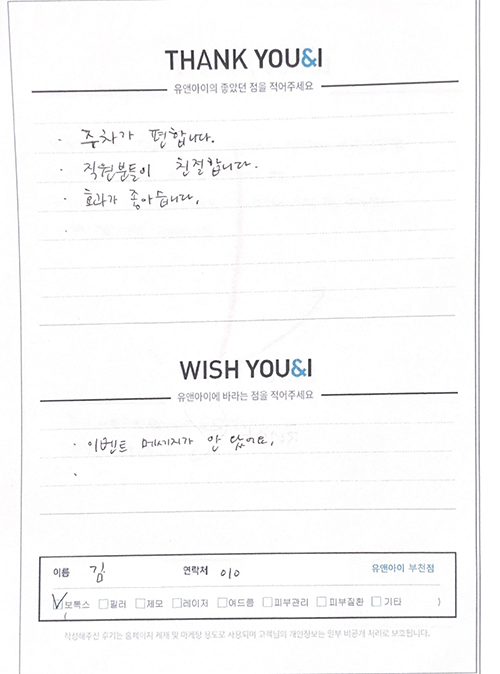 THANK YOU&I
유앤아이의 좋았던 점을 적어주세요
· 주차가 편합니다.
· 직원분들이 친절합니다.
· 효과가 좋아습니다.
·
WISH YOU&I
유앤아이에 바라는 점을 적어주세요
· 이벤트 메세지가 안 왔어요.
·
이름 김 연락처 010 유앤아이 부천점
보톡스 필러 제모 레이저 여드름 피부관리 피부질환 기타 ( )
작성해주신 후기는 홈페이지 게재 및 마케팅 용도로 사용되며 고객님의 개인정보는 일부 비공개 처리로 보호됩니다.